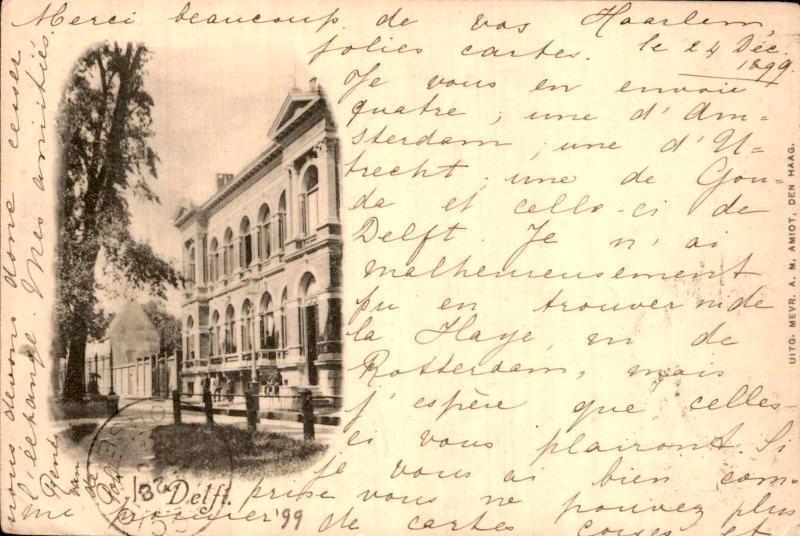 Merci beaucoup de vos Haarlem,
jolies cartes. le 24 Déc.
1899.
Je vous en envoie
quatre, une d'Am=
sterdam, une d'U=
trecht, une de Gou=
da et celle-ci de
Delft. Je n'ai
malheureusement
pu en trouver ni de
la Haye, ni de
Rotterdam, mais
j'espère que celles-
ci vous plairont. Si
je vous ai bien com=
prise vous ne pouvez plus
me procurer de cartes corses et
nous devons donc cesser
l'échange. Mes amitiés.
van
de
Poll
Delft.
'99
UITG. MEVR. A. M. AMIOT, DEN HAAG.